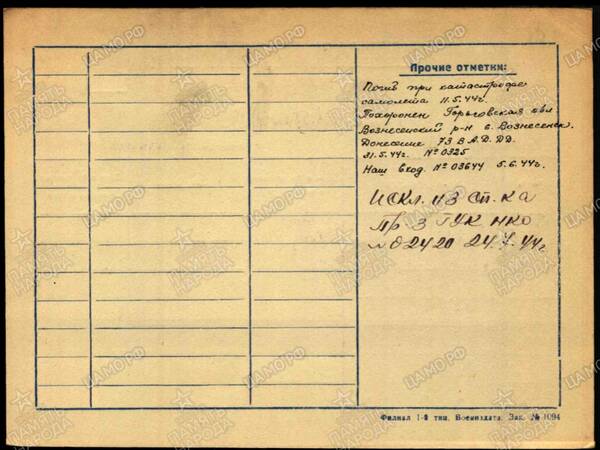 Прочие отметки:
Погиб при катастрофе
самолета 11.5.44г.
Похоронен Горьковская обл
Вознесенский р-н с. Вознесенск.
Донесение 73 В.А.Д. ДД.
31.5.44г. №0325
Наш вход. №03644 5.6.44г.
Искл. из сп. ка
Пр. 3 ГУК НКО
№02420 24.7.44г
Филиал 1-й тип. Воениздата. Зак. № 1094
ЦАМО.РФ
ПАМЯТЬ НАРОДА